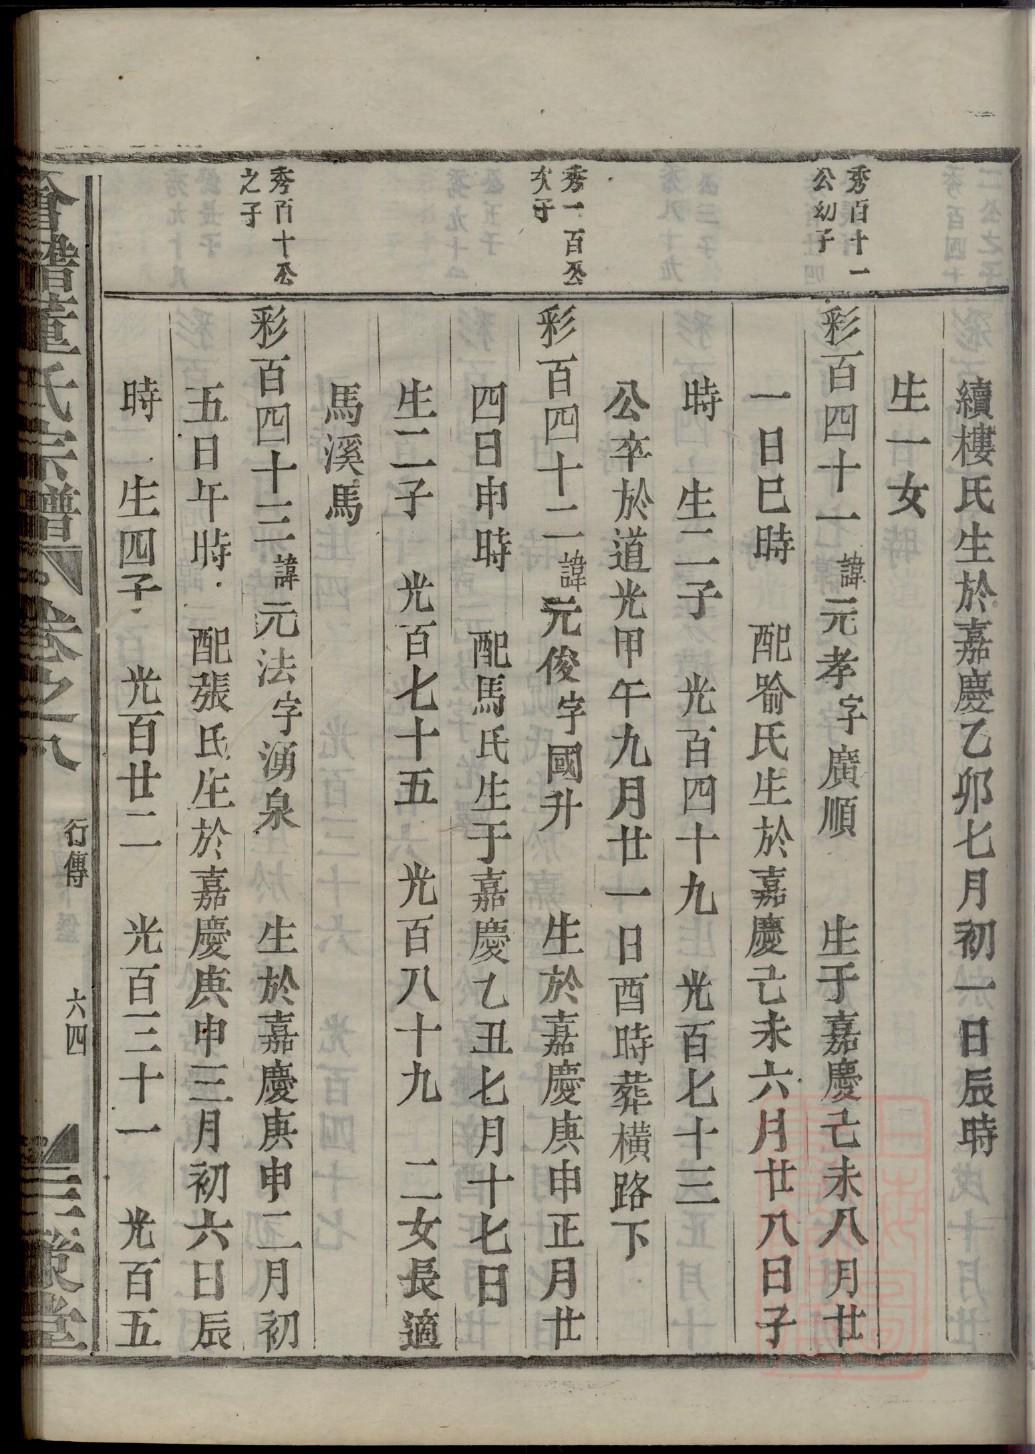 續樓氏生於嘉慶乙卯七月初一日辰時
生一女
秀百十一
公幼子
彩百四十一諱元孝字廣順 生于嘉慶己未八月廿
一日巳時 配喻氏生於嘉慶己未六月廿八日子
時 生二子 光百四十九 光百七十三
公卒於道光甲午九月廿一日酉時葬橫路下
秀一百公
次子
彩百四十二諱元俊字國升 生於嘉慶庚申正月廿
四日申時 配馬氏生于嘉慶乙丑七月十七日
生二子 光百七十五 光百八十九 二女長適
馬溪馬
秀百十公
之子
彩百四十三諱元法字湧泉 生於嘉慶庚申二月初
五日午時 配張氏生於嘉慶庚申三月初六日辰
時 生四子 光百廿二 光百三十一 光百五
會稽董氏宗譜 卷之八 行傳 六四 三策堂